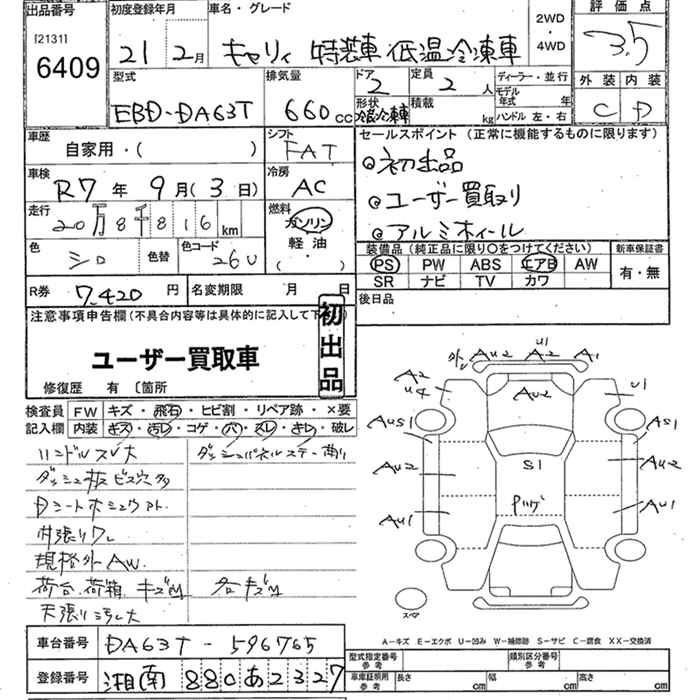 出品番号
[21311
6409
初度登録年月
21 2月
車名・グレード
キャリィ 特装車 低温冷凍車
2WD
・
4WD
評価点
3.5
外装 内装
C D
型式
EBD-DA63T
排気量
660 cc
ドア
2
形状
冷凍車
定員
2 人
積載
kg
ディーラー・並行
モデル年式 年
ハンドル 左・右
車歴
自家用・( )
シフト
FAT
セールスポイント (正常に機能するものに限ります)
初出品
ユーザー買取り
アルミホイール
車検
R7年 9月( 3日)
冷房
AC
走行
20万8千816km
燃料
ガソリン
軽油
( )
色
シロ
色替
色コード
26U
装備品(純正品に限り〇をつけてください)
PS PW ABS エアB AW
SR ナビ TV カワ
新車保証書
有・無
R券
7,420 円
名変期限 月 日
後日品
注意事項申告欄(不具合内容等は具体的に記入して下
初出品
ユーザー買取車
修復歴 有 〔箇所
検査員記入欄
FW キズ・飛石・ヒビ割・リペア跡・×要
内装 キズ・汚レ・コゲ・穴・スレ・キレ・破レ
ハンドルスレ大
ダッシュ板ビス穴多
天張り汚レ大
規格外AW.
荷台.荷箱.キズM
外 AU2 U1 A2 A1
A2
U4
AU2
U1
AUS1
AS1
AU2
S1
AU2
AU1
AU1
スペア
A-キズ E-エクボ U-凹み W-補修跡 S-サビ C-腐食 XX-交換済
車台番号
DA63T-596765
登録番号
湘南 880 あ 2327
型式指定番号 参考
類別区分番号 参考
車庫証明用 参考
長さ cm 幅 cm 高さ cm